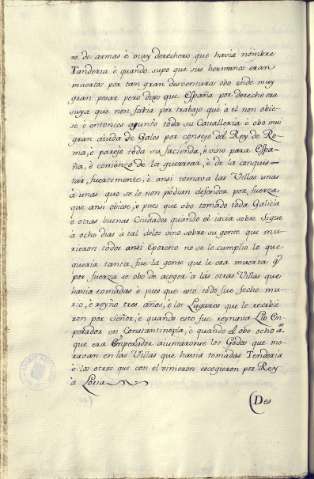 ro de armas è muy derechero que havia nombre
Tanderia è quando supo que sus hermanos eran
muertos por tan gran desventura: obo ende muy
gran pesar pero dijo que España por derecho era
suya que non faria por trabajo que a el non obie-
se, è entonces ayunto toda su Cavalleria è obo mui
gran aiuda de Galos por consejo del Rey de Ro-
ma, è parejo toda su facienda, è vino para Espa-
ña, è comienzo de la guerrear, è de la conquis-
tar, fuertemente, è ansi tomava las Villas unas
à unas que se le non podian defender por fuerza
que ansi obiese, è pues que obo tomado toda Galicia
è otras buenas Ciudades quando el iacia sobre
à ocho dias à tal dolor vino sobre su gente que mu-
rieron todos ansi no se le cumplio lo que
queria tanta fue la gente que le era muerta q.
por fuerza se obo de acoger à las otras Villas que
havia tomadas è pues que esto todo fue fecho mu-
rio, è reyno tres años, è los Lugares que le recibie-
ron por señor, è quando esto fue reynava Em-
perador en Constantinopla, è quando el obo ocho a.
que era Emperador aiuntaronse los Godos que mo-
ravan en las Villas que havia tomadas Tenderia
è los otros que con el vinieron escogieron por Rey
à
(Des